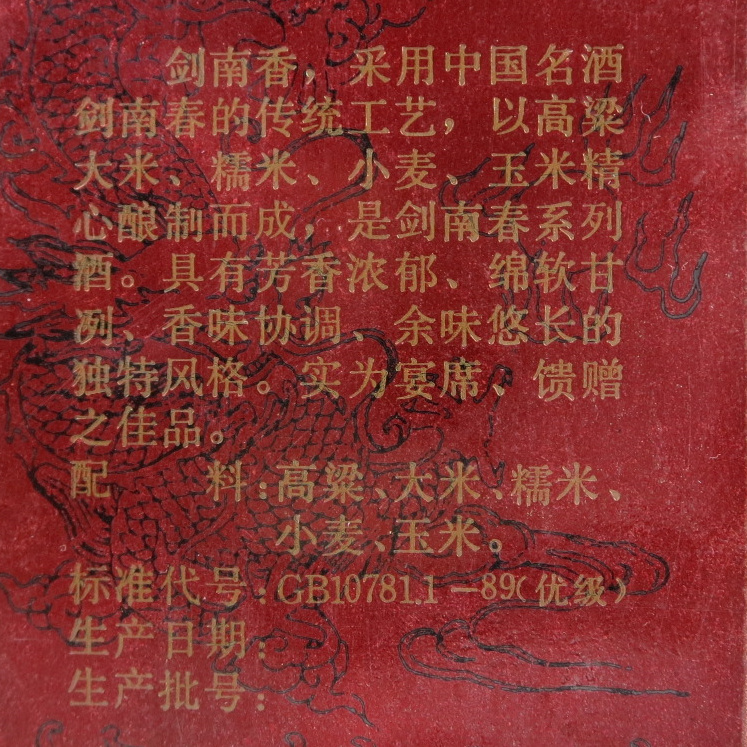 剑南香，采用中国名酒
剑南春的传统工艺，以高粱
大米、糯米、小麦、玉米精
心酿制而成，是剑南春系列
酒。具有芳香浓郁、绵软甘
冽、香味协调、余味悠长的
独特风格。实为宴席、馈赠
之佳品。
配 料：高粱、大米、糯米、
小麦、玉米。
标准代号：GB10781.1－89（优级）
生产日期：
生产批号：